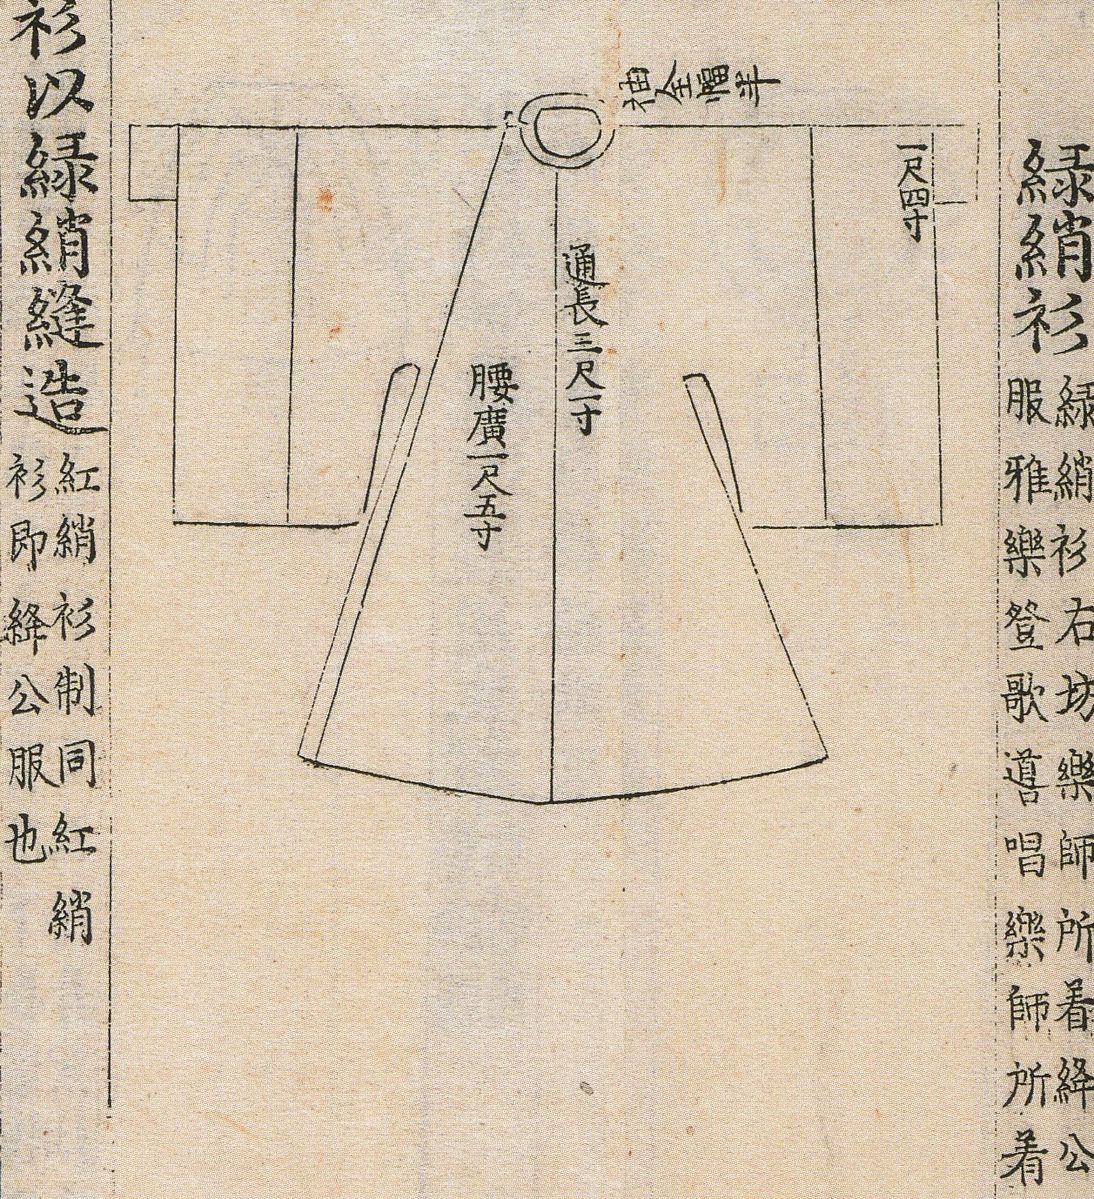 緑綃衫
緑綃衫右坊樂師所着絳公
服雅樂登歌導唱樂師所着
一尺四寸
袖全幅半
通長三尺一寸
腰廣一尺五寸
衫以緑綃縫造
紅綃衫制同紅綃
衫即絳公服也